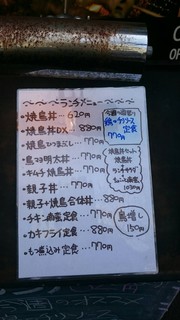 〜〜〜ランチメニュー〜〜〜
・焼鳥丼 … 620円
・焼鳥丼DX … 880円
・焼鳥ひつまぶし … 770円
・鳥マヨ明太丼 … 770円
・キムチ焼鳥丼 … 770円
・親子丼 … 770円
・親子・焼鳥合体丼 … 880円
・チキン南蛮定食 … 770円
・カキフライ定食 … 880円
・もつ煮込み定食 … 770円
定食
770円
焼鳥丼セット
焼鳥丼
1030円
鳥増し
150円